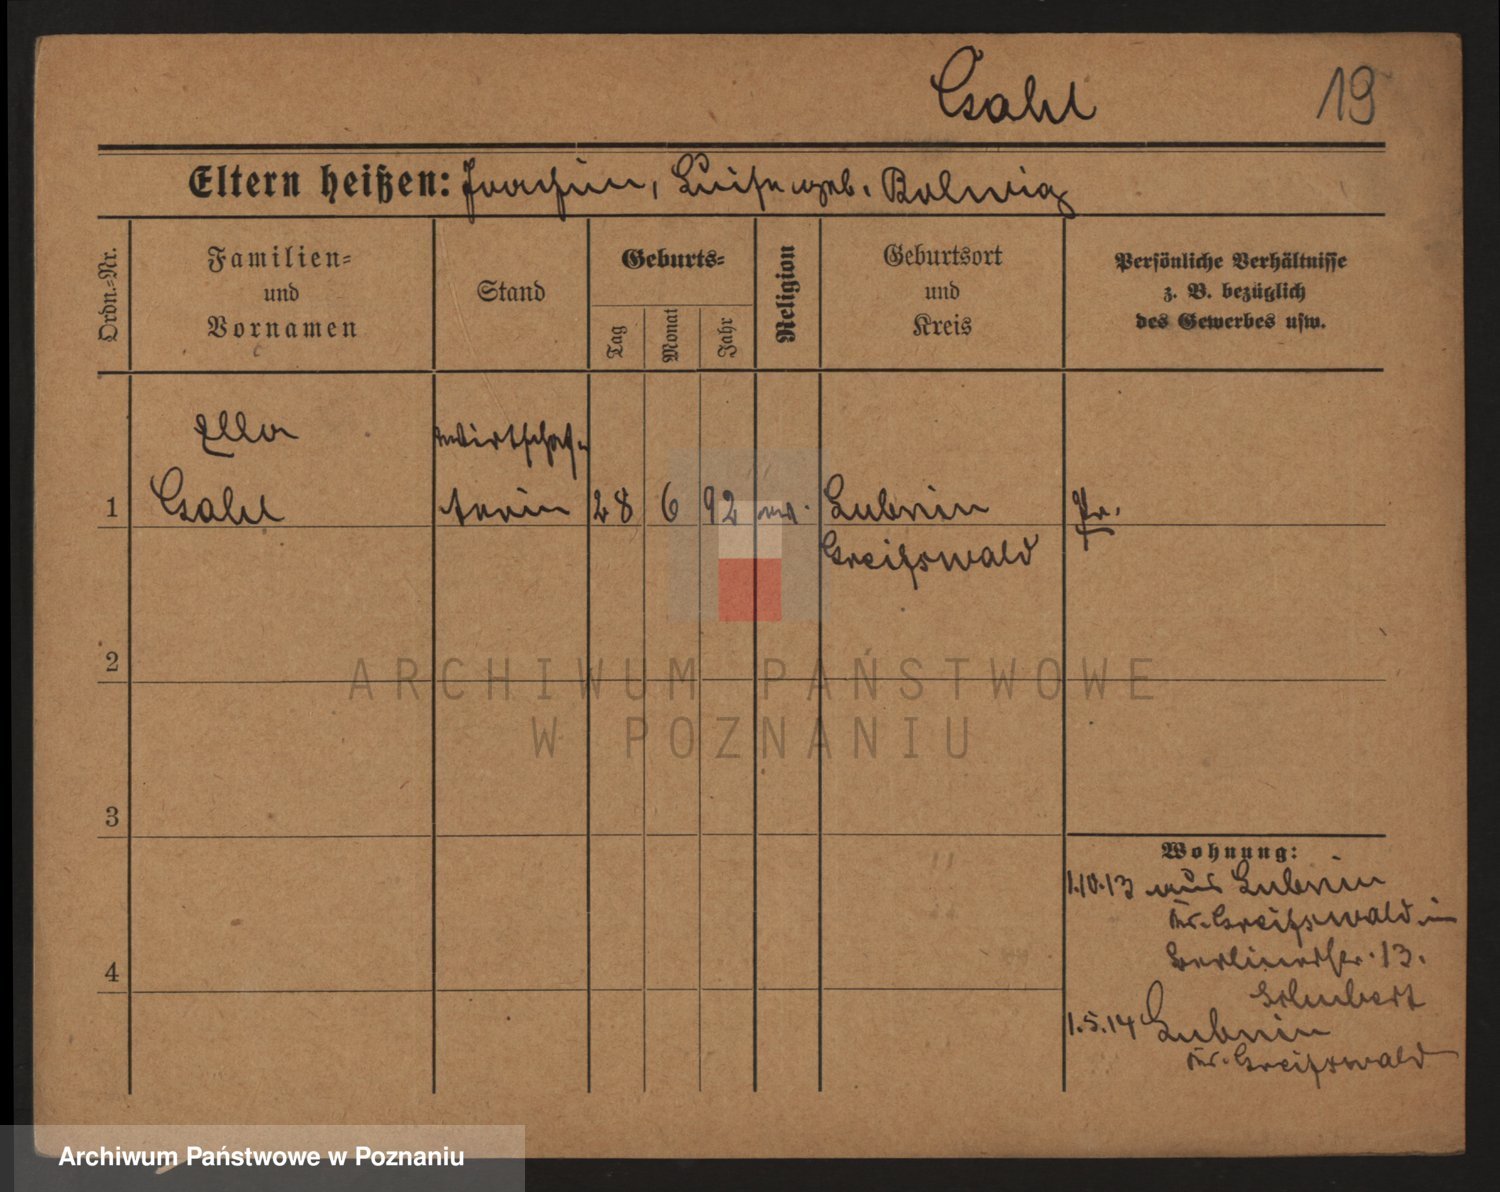 Gahl
19
Eltern heißen: Joachim, Luise geb. Bolwig
Ordn.=Nr.
Familien=
und
Vornamen
Stand
Geburts=
Tag
Monat
Jahr
Religion
Geburtsort
und
Kreis
Persönliche Verhältnisse
z. B. bezüglich
des Gewerbes usw.
Ella
Wirtschaf-
1
Gahl
terin
28
6
92
ev.
Lubmin
Pr.
Greifswald
2
ARCHIWUM PAŃSTWOWE
W POZNANIU
3
Wohnung:
1.10.13 aus Lubmin
Kr. Greifswald in
Berlinerstr. 13.
4
Schubert
1.5.14 Lubmin
Kr. Greifswald
Archiwum Państwowe w Poznaniu